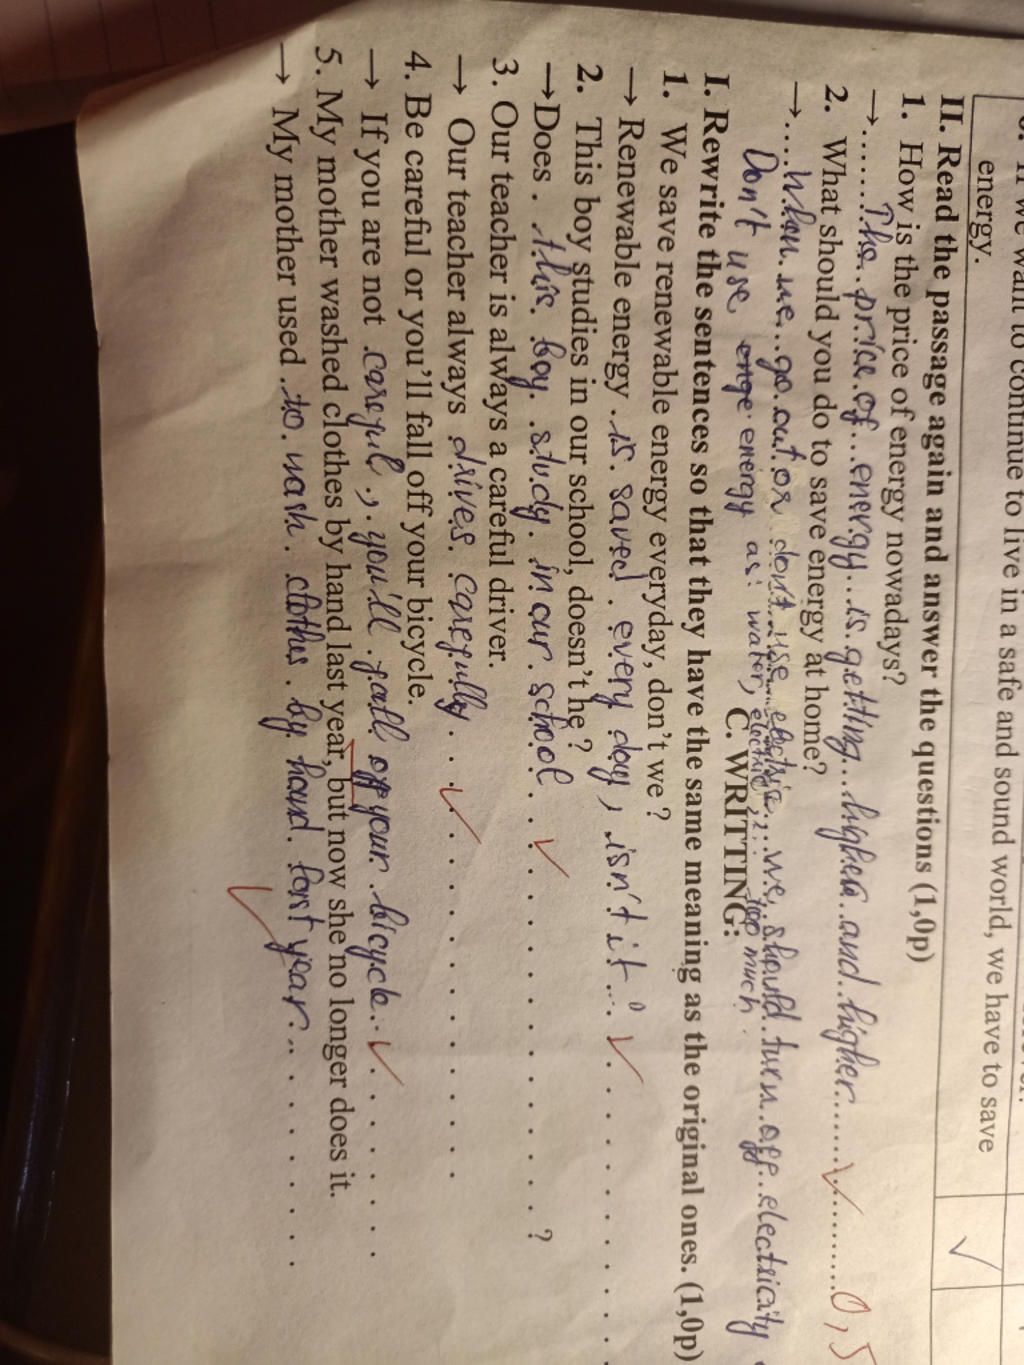 If we want to continue to live in a safe and sound world, we have to save
energy.
II. Read the passage again and answer the questions (1,0p)
1. How is the price of energy nowadays?
→ The price of energy is getting higher and higher 0,5
2. What should you do to save energy at home?
→ When we go out or don't use electric we should turn off electricity.
Don't use energy as: water, electric, too much.
C. WRITTING:
I. Rewrite the sentences so that they have the same meaning as the original ones. (1,0p)
1. We save renewable energy everyday, don't we ?
→ Renewable energy is saved every day, isn't it?
2. This boy studies in our school, doesn't he ?
→Does this boy study in our school ?
3. Our teacher is always a careful driver.
→ Our teacher always drives carefully.
4. Be careful or you'll fall off your bicycle.
→ If you are not careful, you'll fall off your bicycle.
5. My mother washed clothes by hand last year, but now she no longer does it.
→ My mother used to wash clothes by hand last year.